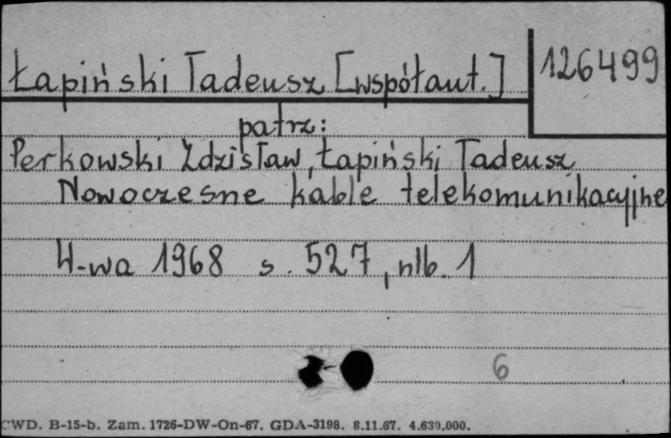 Łapiński Tadeusz [współaut.] 126499
patrz:
Perkowski Zdzisław, Łapiński Tadeusz
Nowoczesne kable telekomunikacyjne
W-wa 1968 s. 527, nlb. 1
6
CWD. B-15-b. Zam. 1726-DW-On-67. GDA-3198. 8.11.67. 4.639.000.